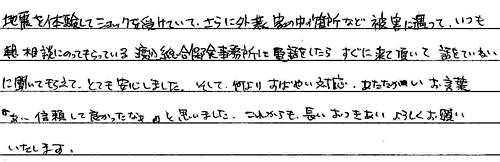 地震を体験してショックを受けていて、さらに外装、家の中ヶ箇所など被害に遇って、いつも
親相談にのってもらっている 総合保険事務所に電話をしたら すぐに来て頂いて 話をていねい
に聞いてもらえて、とても安心しました。そして、何より すばやい対応、あたたかい お言葉
『あ、信頼して良かったなぁ』と思いました。これからも、長いおつきあい よろしくお願い
いたします。